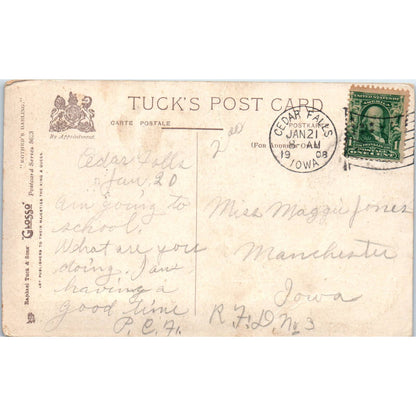 TUCK'S POST CARD
CARTE POSTALE
POSTKARTE
By Appointment.
(For Address Only)
CEDAR FALLS
JAN 21
8 AM
1908
IOWA
1
"MOTHER'S DARLING."
Raphael Tuck & Sons' "GLOSSO" Postcard Series
ART PUBLISHERS TO THEIR MAJESTIES THE KING & QUEEN.
Cedar Falls
Jan. 20
Am going to
school.
What are you
doing. I am
having a
good time
P. C. F.
Miss Maggie Jones
Manchester
Iowa
R. F. D. No 3